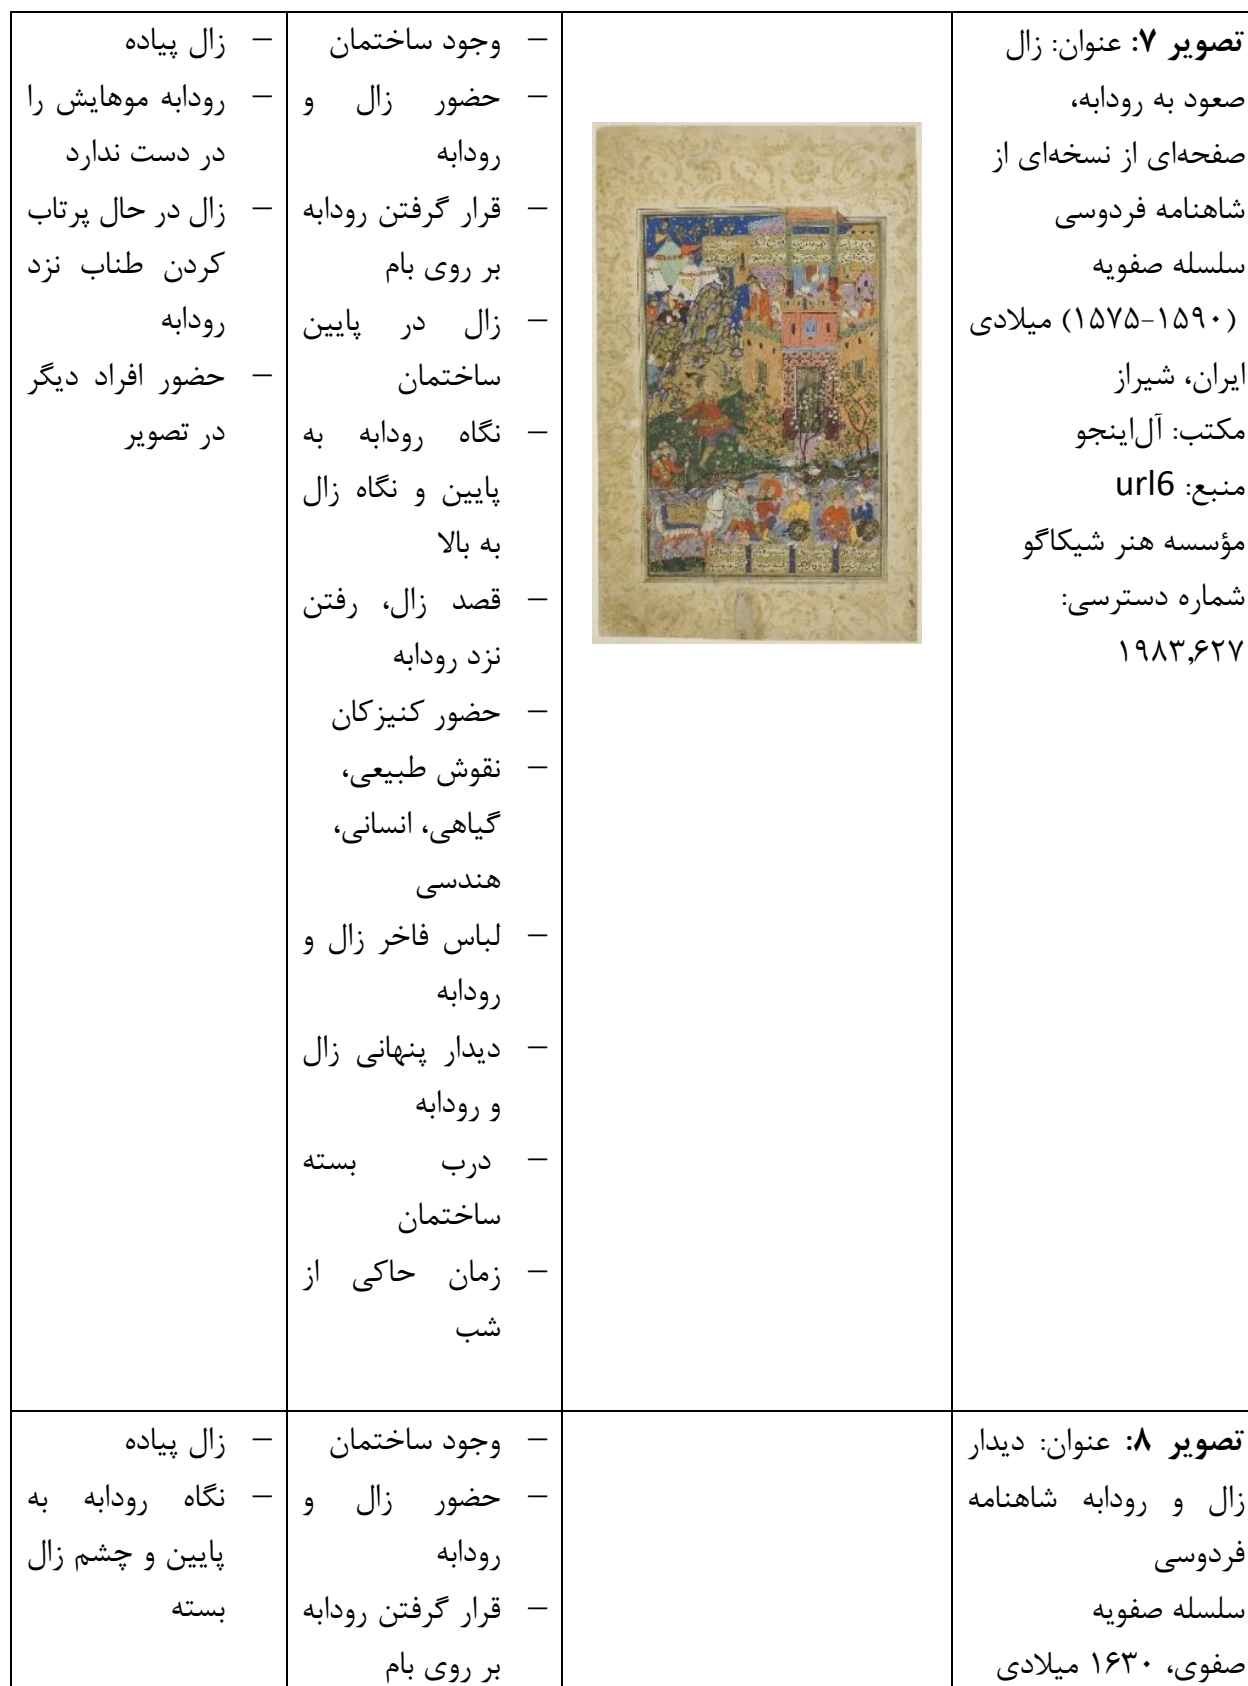 تصویر ۷: عنوان: زال
صعود به رودابه،
صفحه‌ای از نسخه‌ای از
شاهنامه فردوسی
سلسله صفویه
(۱۵۷۵-۱۵۹۰) میلادی
ایران، شیراز
مکتب: آل‌اینجو
منبع: url6
مؤسسه هنر شیکاگو
شماره دسترسی:
۱۹۸۳,۶۲۷
– وجود ساختمان
– حضور زال و
رودابه
– قرار گرفتن رودابه
بر روی بام
– زال در پایین
ساختمان
– نگاه رودابه به
پایین و نگاه زال
به بالا
– قصد زال، رفتن
نزد رودابه
– حضور کنیزکان
– نقوش طبیعی،
گیاهی، انسانی،
هندسی
– لباس فاخر زال و
رودابه
– دیدار پنهانی زال
و رودابه
– درب بسته
ساختمان
– زمان حاکی از
شب
– زال پیاده
– رودابه موهایش را
در دست ندارد
– زال در حال پرتاب
کردن طناب نزد
رودابه
– حضور افراد دیگر
در تصویر
تصویر ۸: عنوان: دیدار
زال و رودابه شاهنامه
فردوسی
سلسله صفویه
صفوی، ۱۶۳۰ میلادی
– وجود ساختمان
– حضور زال و
رودابه
– قرار گرفتن رودابه
بر روی بام
– زال پیاده
– نگاه رودابه به
پایین و چشم زال
بسته